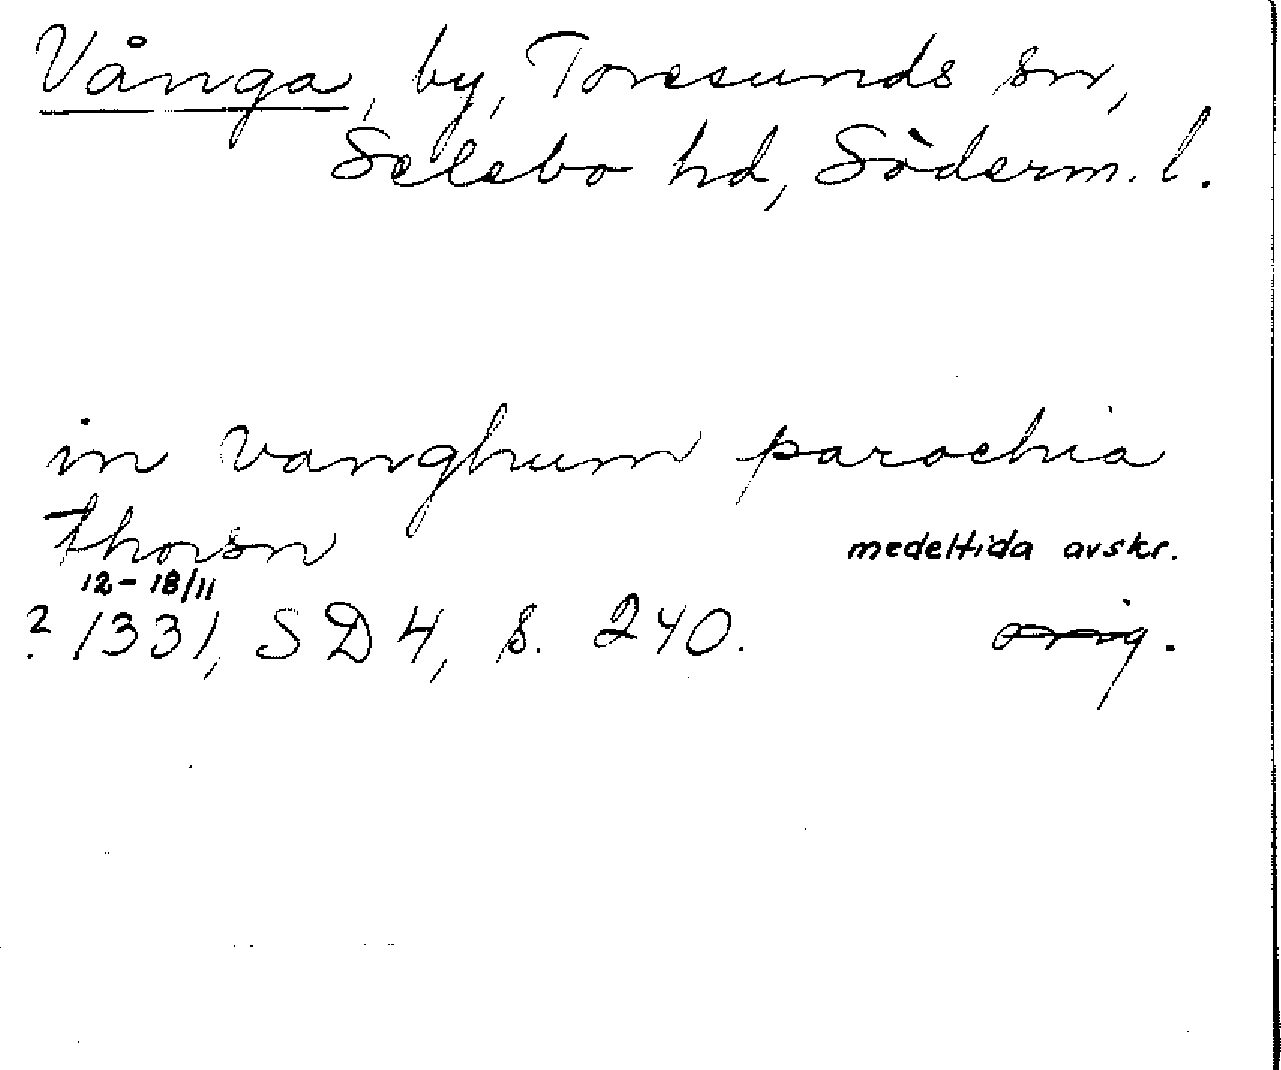 Vånga, by, Toresunds sn,
Selebo hd, Söderm. l.
in vanghum parochia
thorsn
medeltida avskr.
12-18/11
? 1331, SD 4, s. 240. orig.